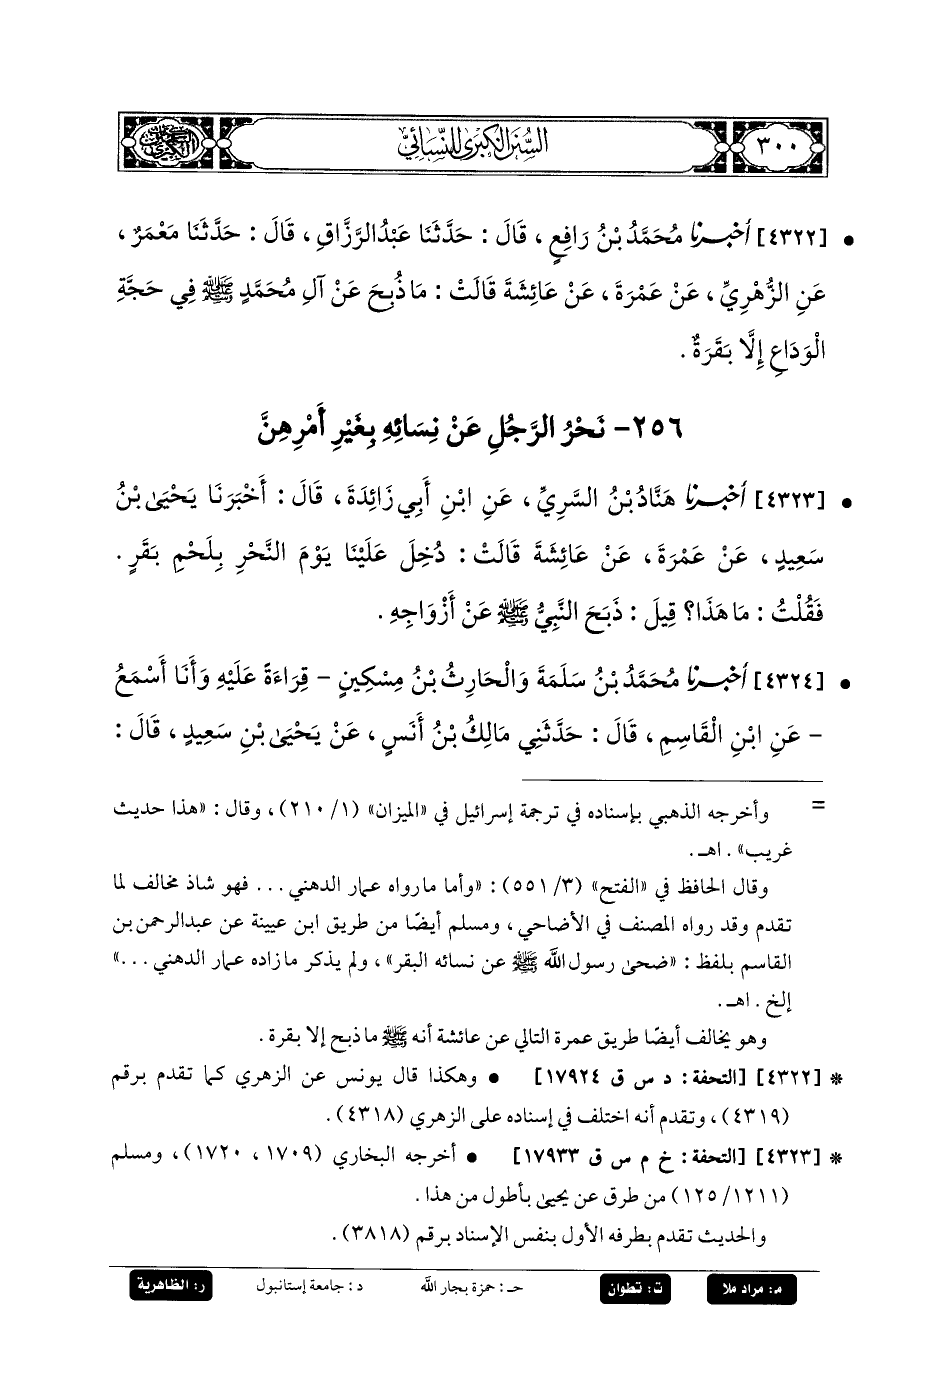 ٣٠٠
السنن الكبرى للنسائي
• [٤٣٢٢] أخبرنا مُحَمَّدُ بْنُ رَافِعٍ، قَالَ: حَدَّثَنَا عَبْدُالرَّزَّاقِ، قَالَ: حَدَّثَنَا مَعْمَرٌ،
عَنِ الزُّهْرِيِّ، عَنْ عَمْرَةَ، عَنْ عَائِشَةَ قَالَتْ: مَا ذُبِحَ عَنْ آلِ مُحَمَّدٍ ﷺ فِي حَجَّةِ
الْوَدَاعِ إِلَّا بَقَرَةٌ.
٢٥٦- نَحْرُ الرَّجُلِ عَنْ نِسَائِهِ بِغَيْرِ أَمْرِهِنَّ
• [٤٣٢٣] أخبرنا هَنَّادُ بْنُ السَّرِيِّ، عَنِ ابْنِ أَبِي زَائِدَةَ، قَالَ: أَخْبَرَنَا يَحْيَىٰ بْنُ
سَعِيدٍ، عَنْ عَمْرَةَ، عَنْ عَائِشَةَ قَالَتْ: دُخِلَ عَلَيْنَا يَوْمَ النَّحْرِ بِلَحْمِ بَقَرٍ.
فَقُلْتُ: مَا هَذَا؟ قِيلَ: ذَبَحَ النَّبِيُّ ﷺ عَنْ أَزْوَاجِهِ.
• [٤٣٢٤] أخبرنا مُحَمَّدُ بْنُ سَلَمَةَ وَالْحَارِثُ بْنُ مِسْكِينٍ - قِرَاءَةً عَلَيْهِ وَأَنَا أَسْمَعُ
- عَنِ ابْنِ الْقَاسِمِ، قَالَ: حَدَّثَنِي مَالِكُ بْنُ أَنَسٍ، عَنْ يَحْيَىٰ بْنِ سَعِيدٍ، قَالَ:
= وأخرجه الذهبي بإسناده في ترجمة إسرائيل في «الميزان» (١/ ٢١٠)، وقال: «هذا حديث
غريب». اهـ.
وقال الحافظ في «الفتح» (٣/ ٥٥١): «وأما ما رواه عمار الدهني... فهو شاذ مخالف لما
تقدم وقد رواه المصنف في الأضاحي، ومسلم أيضًا من طريق ابن عيينة عن عبدالرحمن بن
القاسم بلفظ: «ضحىٰ رسول الله ﷺ عن نسائه البقر»، ولم يذكر ما زاده عمار الدهني...»
إلخ. اهـ.
وهو يخالف أيضًا طريق عمرة التالي عن عائشة أنه ﷺ ما ذبح إلا بقرة.
* [٤٣٢٢] [التحفة: د س ق ١٧٩٢٤] • وهكذا قال يونس عن الزهري كما تقدم برقم
(٤٣١٩)، وتقدم أنه اختلف في إسناده على الزهري (٤٣١٨).
* [٤٣٢٣] [التحفة: خ م س ق ١٧٩٣٣] • أخرجه البخاري (١٧٠٩، ١٧٢٠)، ومسلم
(١٢١١/ ١٢٥) من طرق عن يحيىٰ بأطول من هذا.
والحديث تقدم بطرفه الأول بنفس الإسناد برقم (٣٨١٨).
م: مراد ملا ت: تطوان حـ: حمزة بجار الله د: جامعة إستانبول ر: الظاهرية